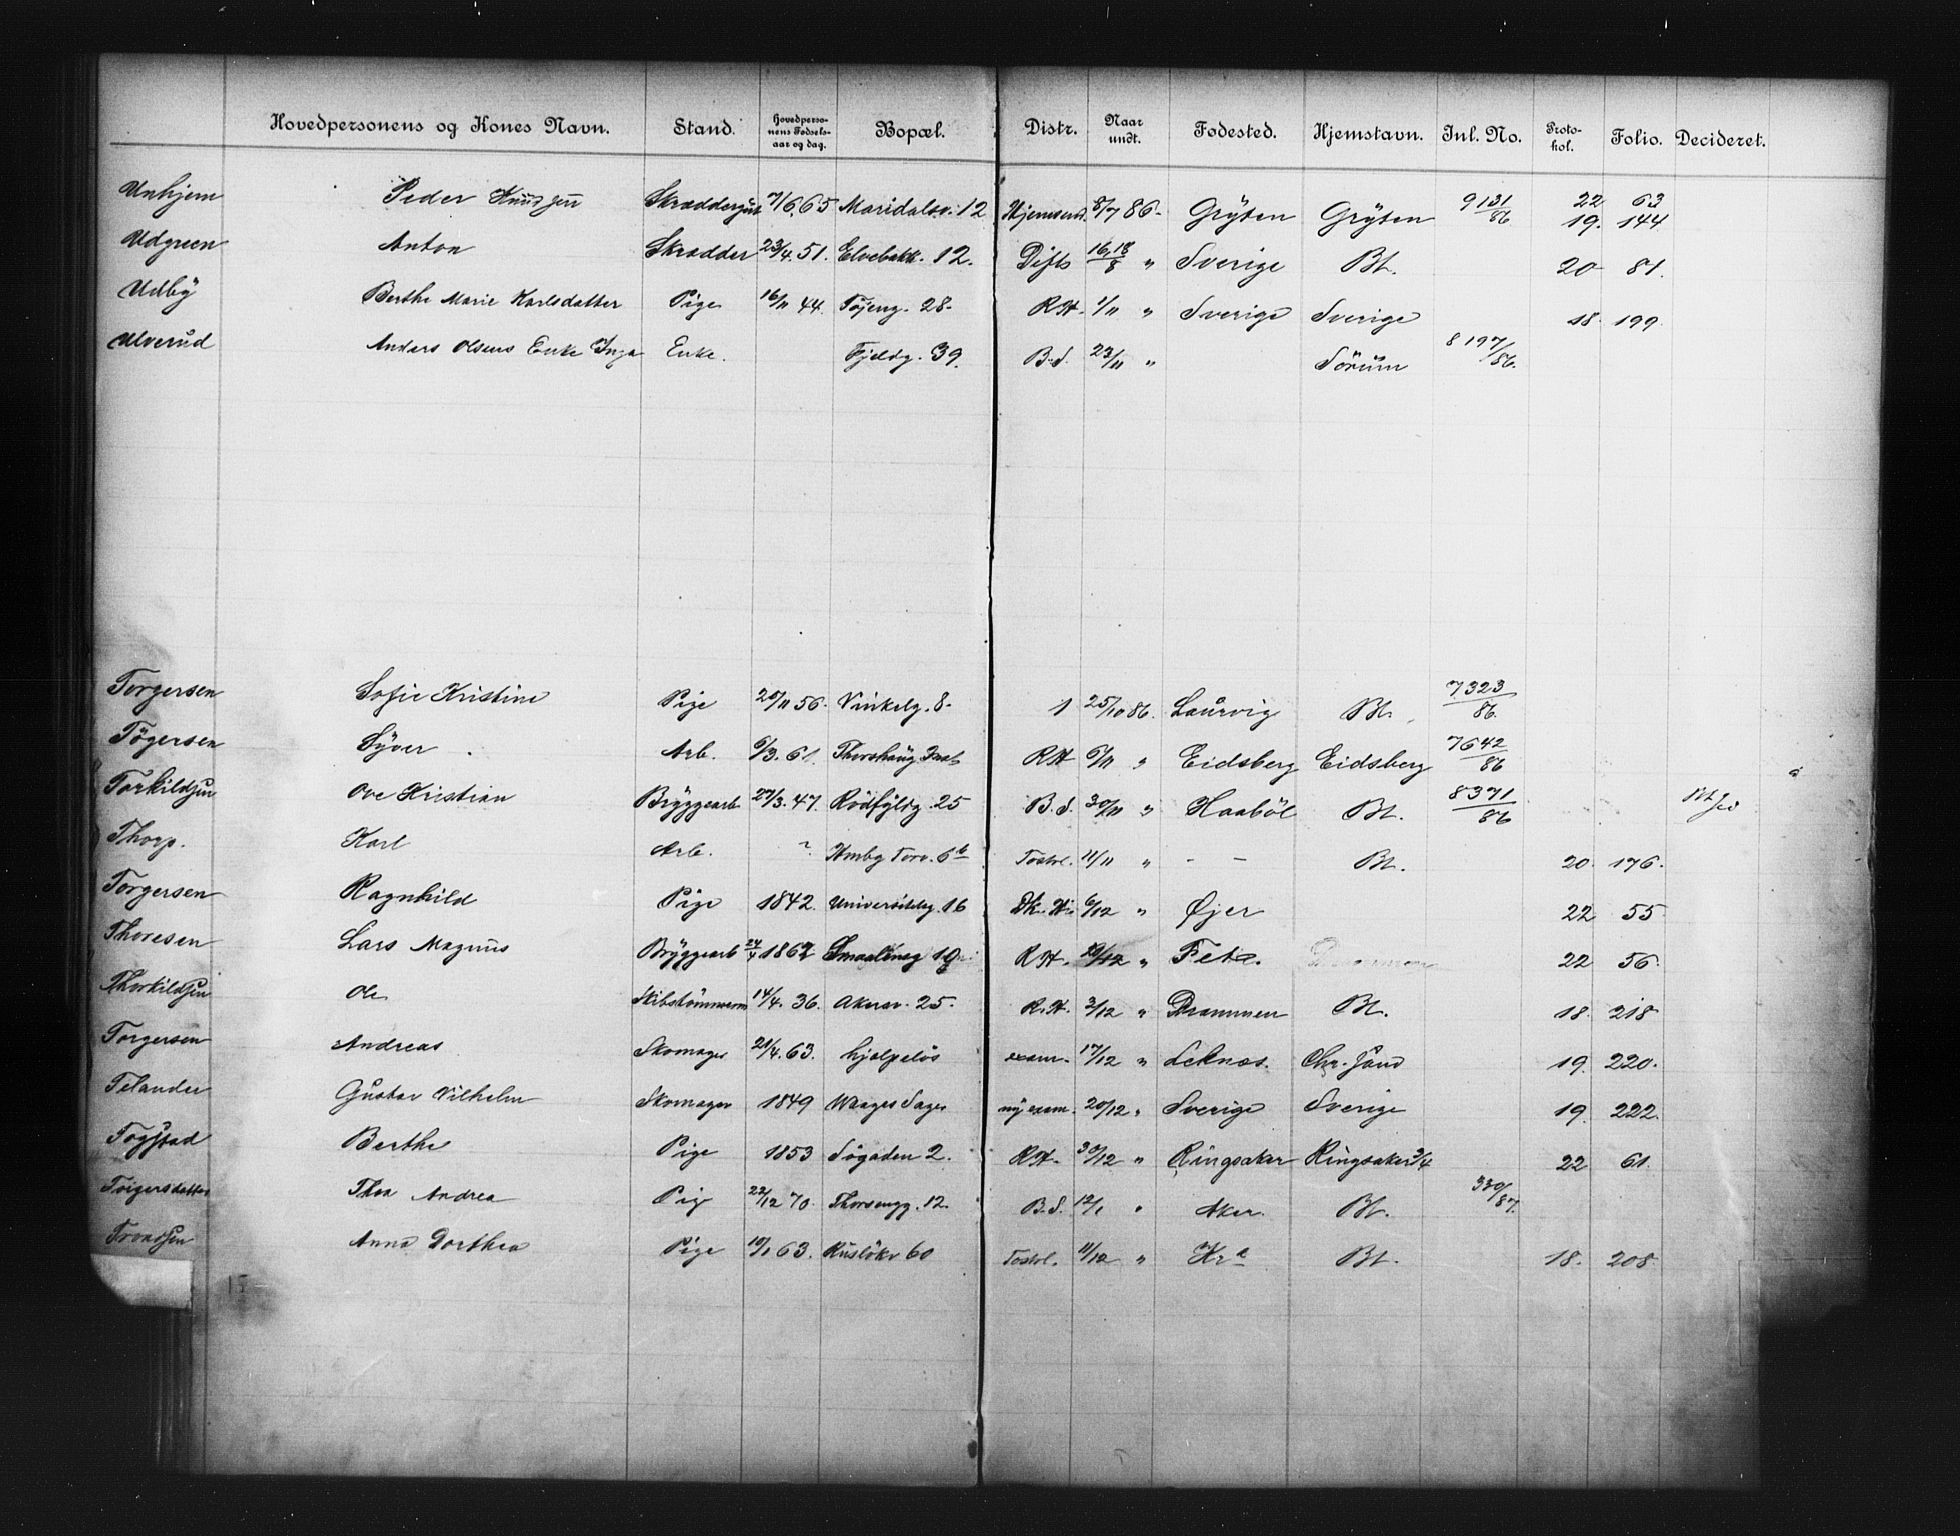 Hovedpersonens og Kones Navn. Stand. Hovedpersonens Fødselsaar og dag. Bopæl. Distr. Naar undt. Fødested. Hjemstavn. Jnl. No. Protokol. Folio. Decideret.
Unhjem Peder Knudsen Skræddersv 7/6 65 Maridalsv. 12 Hjemsend. 8/7 86 Grÿten Grÿten 9131/86 22 63 19. 144
Udgreen Anton Skrædder 23/4. 51. Elvebakk. 12. Difts 16/8 18 " Sverige Bt. 20 81.
Udby Berthe Marie Karlsdatter Pige 16/11 44. Tøjeng. 28. RH. 1/11 " Sverige Sverige 18. 199
Ulverud Anders Olsens Enke Inga Enke. Fjeldg. 39. B.S. 23/11 " Sørum 8197/86.
Torgersen Sofie Kristine Pige 20/11 56. Vinkelg. 8. 1 25/10 86. Laurvig Bt. 7323/86.
Tøgersen Syver Arb. 6/3. 61. Thorshaug RH 6/11 " Eidsberg Eidsberg 7642/86
Torkildsen Ove Kristian Bryggearb 27/3. 47. Rødfyldg. 25 B.S. 30/11 " Haabøl Bt. 8371/86
Thorp. Karl Arb. ? Hmbg Torv. 6b Tostrl. 11/11 " - - Bt. 20. 176.
Torgersen Ragnhild Pige 1842. Universitetsg. 16 Dk. H. 6/12 " Øjer 22 55
Thoresen Lars Magnus Bryggearb 24/4 1867 Smaalensg 19 RH. 29/12 " Fete. 22 56.
Thorkildsen Ole Skibstømmerm 14/4. 36. Akersv. 25. R.H. 3/12 " Drammen Bt. 18. 218
Torgersen Andreas Skomager 21/4. 63. hjælpeløs exam. 17/12 " Leknæs. Chr. Sand 19. 220.
Telander Gustav Vilhelm Skomager 1849 Waages Sager ny exam. 20/12 " Sverige Sverige 19. 222.
Togstad Berthe Pige 1853 Søgaden 2. RH. 30/12 " Ringsaker Ringsaker 3/4 22 61.
Torgersdatter Thea Andrea Pige 22/12 70. Thorsengg. 12. B.S. 12/1 " Aker. Bt. 330/87.
Trondsen Anna Dorthea Pige 10/1 63. Rusløkv 60 Tostrl. 11/12 " Kra Bt. 18. 208.